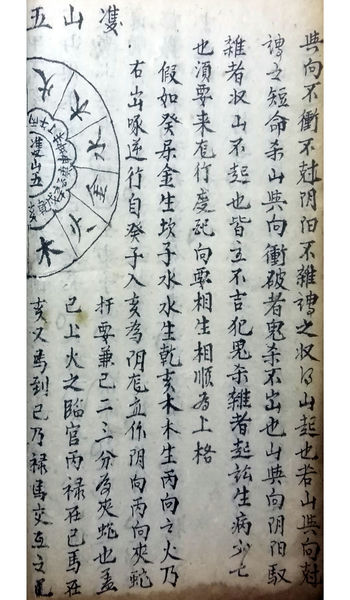 與向不衝不尅阴阳不雜謂之収得山起也若山與向尅
謂之短命杀山與向衝破者鬼杀不出也山與向阴阳馭
雜者収山不起也皆主不吉犯鬼杀雜者起訟生病少亡
也須要来龙行度記向要相生相順為上格
假如癸屎金生坎子水水生乾亥木木生丙向之火乃
右出脉逆行自癸子入亥為阴龙立作阴向丙向夾蛇
扦要兼巳二三分為夾蛇也盖
巳上火之臨官丙禄在巳馬在
亥又馬到巳乃禄馬交互之
雙山五
火
木
水
金
火
木
雙山五